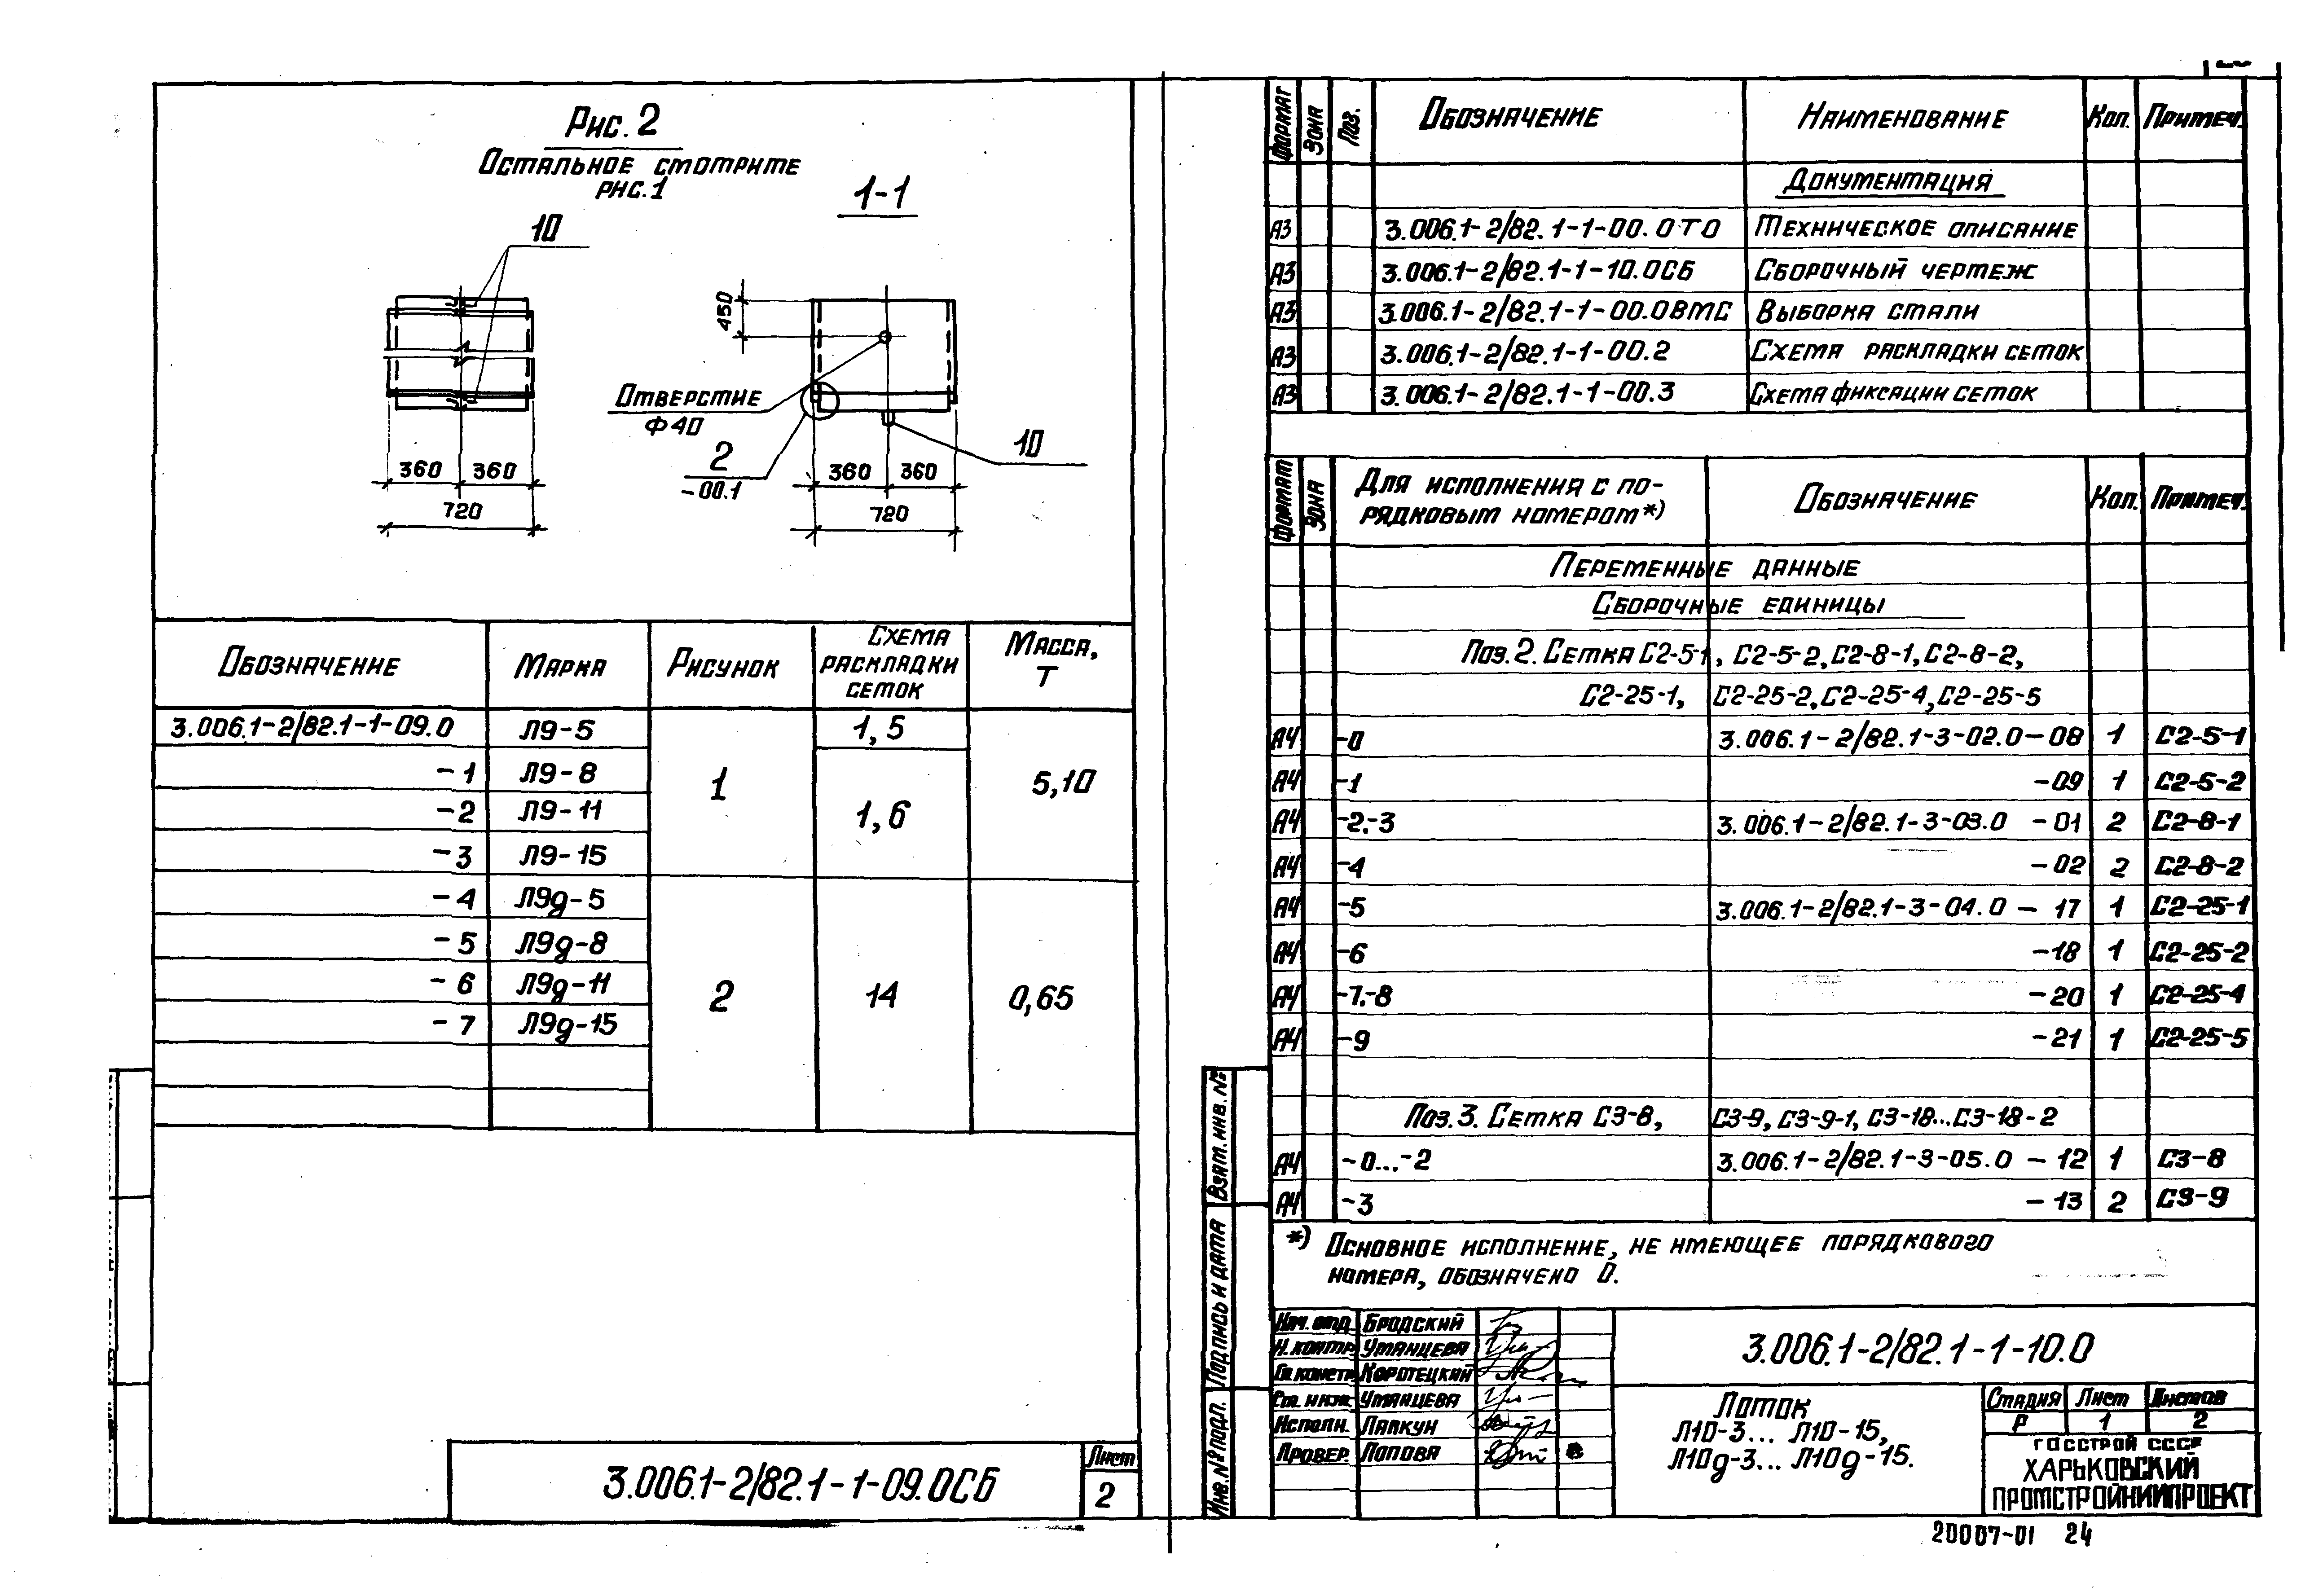 Рис. 2
Остальное смотрите
рис. 1
1-1
10
450
Отверстие
Ф40
2
-00.1
10
360 360
720
360 360
720
Обозначение Марка Рисунок Схема раскладки сеток Масса, т
3.006.1-2/82.1-1-09.0 Л9-5 1 1,5 5,10
-1 Л9-8 1,6
-2 Л9-11
-3 Л9-15
-4 Л9д-5 2 14 0,65
-5 Л9д-8
-6 Л9д-11
-7 Л9д-15
3.006.1-2/82.1-1-09.0СБ
Лист
2
Формат Зона Поз. Обозначение Наименование Кол. Примеч.
Документация
А3 3.006.1-2/82.1-1-00.0ТО Техническое описание
А3 3.006.1-2/82.1-1-10.0СБ Сборочный чертеж
А3 3.006.1-2/82.1-1-00.0ВМС Выборка стали
А3 3.006.1-2/82.1-1-00.2 Схема раскладки сеток
А3 3.006.1-2/82.1-1-00.3 Схема фиксации сеток
Формат Зона Для исполнения с по- Обозначение Кол. Примеч.
рядковым номером*)
Переменные данные
Сборочные единицы
Поз. 2. Сетка С2-5-1, С2-5-2, С2-8-1, С2-8-2,
С2-25-1, С2-25-2, С2-25-4, С2-25-5
А4 -0 3.006.1-2/82.1-3-02.0-08 1 С2-5-1
А4 -1 -09 1 С2-5-2
А4 -2,-3 3.006.1-2/82.1-3-03.0 -01 2 С2-8-1
А4 -4 -02 2 С2-8-2
А4 -5 3.006.1-2/82.1-3-04.0 - 17 1 С2-25-1
А4 -6 -18 1 С2-25-2
А4 -7,-8 -20 1 С2-25-4
А4 -9 -21 1 С2-25-5
Поз. 3. Сетка С3-8, С3-9, С3-9-1, С3-18...С3-18-2
А4 -0...-2 3.006.1-2/82.1-3-05.0 - 12 1 С3-8
А4 -3 - 13 2 С3-9
*) Основное исполнение, не имеющее порядкового
номера, обозначено 0.
Взам. инв. №
Подпись и дата
Инв. № подл.
Нач. отд. Бродский
Н. контр. Уманцева
Гл. констр. Коротецкий
Ст. инж. Уманцева
Исполн. Лапкун
Провер. Попова
3.006.1-2/82.1-1-10.0
Лоток
Л10-3... Л10-15,
Л10д-3... Л10д-15.
Стадия Лист Листов
Р 1 2
Госстрой СССР
Харьковский
Промстройниипроект
20007-01 24